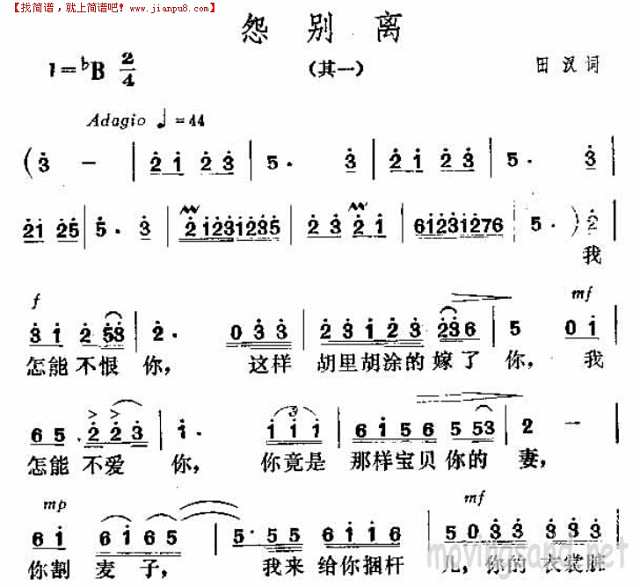 【找简谱，就上简谱吧！www.jianpu8.com】
怨别离
1=♭B 2/4 （其一） 田汉词
Adagio ♩=44
( 3 - | 2 1 2 3 | 5 · 3 | 2 1 2 3 | 5 · 3 |
2 1 2 5 | 5 · 3 | 2 1 2 3 1 2 3 5 | 2 3 2 1 | 6 1 2 3 1 2 7 6 | 5 · ) 2
我
f mf
3 1 2 5 3 | 2 · 0 3 3 | 2 3 1 2 2 3 6 | 5 0 1 |
怎能不恨你，这样胡里胡涂的嫁了你，我
6 5 2 2 3 | 1 · 1 1 1 | 6 1 5 6 5 5 3 | 2 - |
怎能不爱你，你竟是那样宝贝你的妻，
mp mf
6 1 6 1 6 5 | 5 · 5 5 5 6 1 1 6 | 5 0 3 3 3 3 3
你割麦子，我来给你捆杆儿，你的衣裳脏
movingsand.net